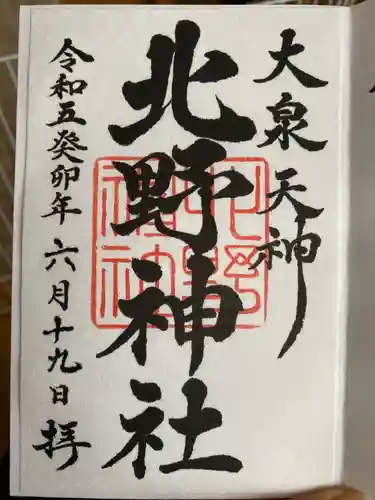 大泉天神
北野神社
令和五癸卯年六月十九日 拝
北野神社